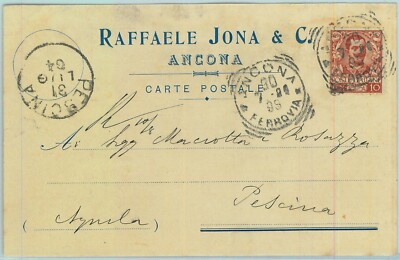 RAFFAELE JONA & C.
ANCONA
CARTE POSTALE
PESCINA
31
LUG
04
ANCONA
FERROVIA
10
A: Macrotta e Rosazza
Pescina
(Aquila)